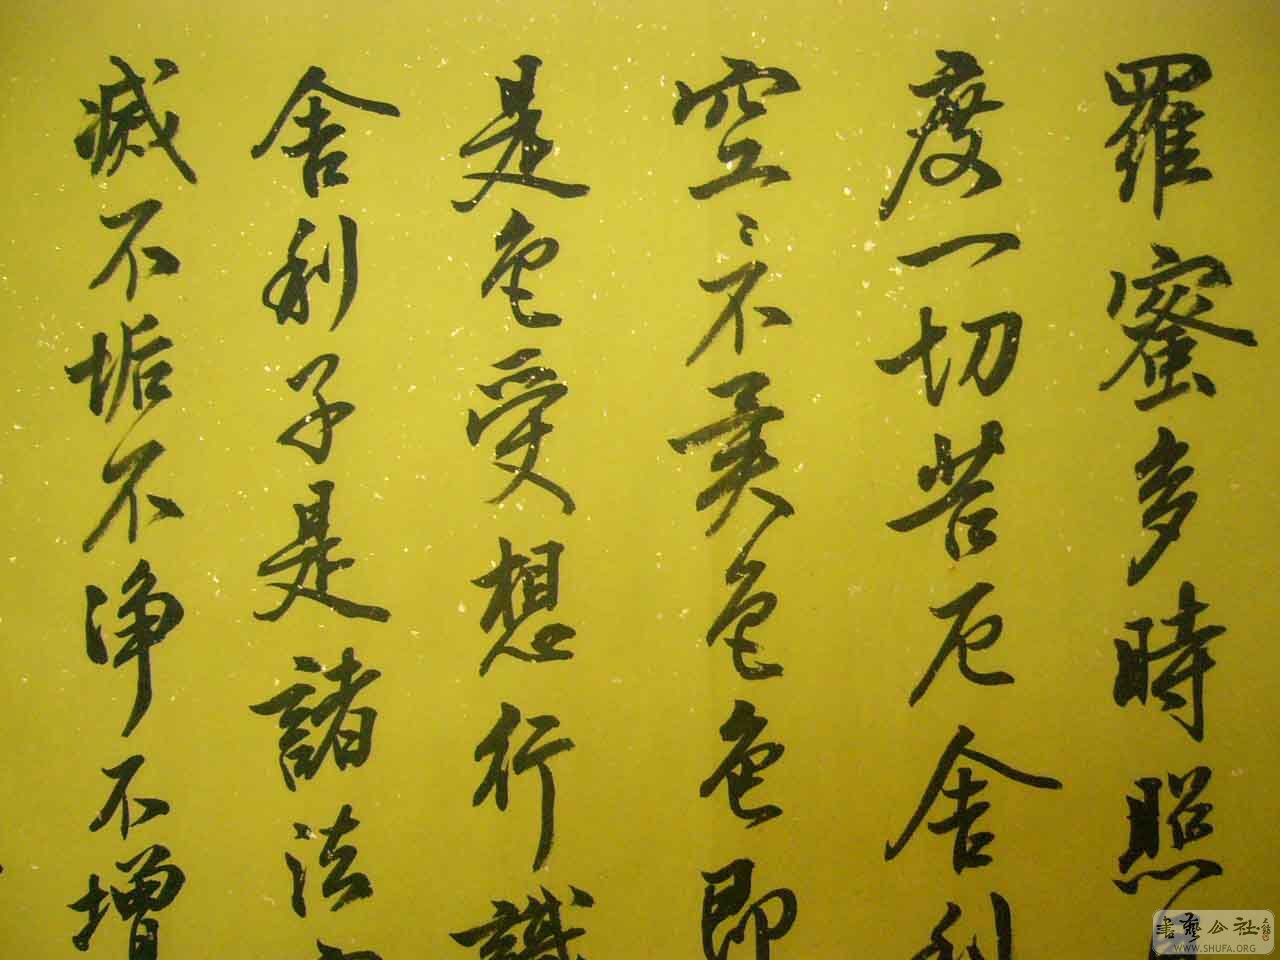 羅蜜多時照
度一切苦厄舍利
空〻不異色色即
是色受想行識
舍利子是諸法
滅不垢不净不增
書藝公社
WWW.SHUFA.ORG